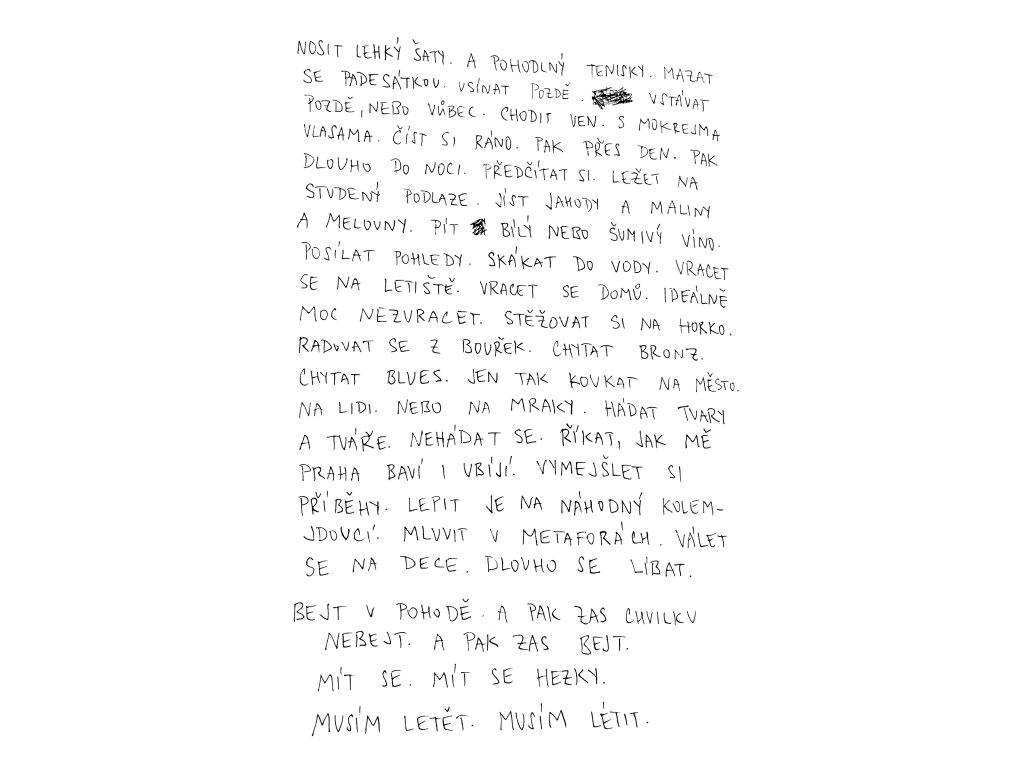 NOSIT LEHKÝ ŠATY. A POHODLNÝ TENISKY. MAZAT
SE PADESÁTKOU. USÍNAT POZDĚ. VSTÁVAT
POZDĚ, NEBO VŮBEC. CHODIT VEN. S MOKREJMA
VLASAMA. ČÍST SI RÁNO. PAK PŘES DEN. PAK
DLOUHO DO NOCI. PŘEDČÍTAT SI. LEŽET NA
STUDENÝ PODLAZE. JÍST JAHODY A MALINY
A MELOUNY. PÍT BÍLÝ NEBO ŠUMIVÝ VÍNO.
POSÍLAT POHLEDY. SKÁKAT DO VODY. VRACET
SE NA LETIŠTĚ. VRACET SE DOMŮ. IDEÁLNĚ
MOC NEZVRACET. STĚŽOVAT SI NA HORKO.
RADOVAT SE Z BOUŘEK. CHYTAT BRONZ.
CHYTAT BLUES. JEN TAK KOUKAT NA MĚSTO.
NA LIDI. NEBO NA MRAKY. HÁDAT TVARY
A TVÁŘE. NEHÁDAT SE. ŘÍKAT, JAK MĚ
PRAHA BAVÍ I UBÍJÍ. VYMEJŠLET SI
PŘÍBĚHY. LEPIT JE NA NÁHODNÝ KOLEM-
JDOUCÍ. MLUVIT V METAFORÁCH. VÁLET
SE NA DECE. DLOUHO SE LÍBAT.
BEJT V POHODĚ. A PAK ZAS CHVILKU
NEBEJT. A PAK ZAS BEJT.
MÍT SE. MÍT SE HEZKY.
MUSÍM LETĚT. MUSÍM LÉTIT.